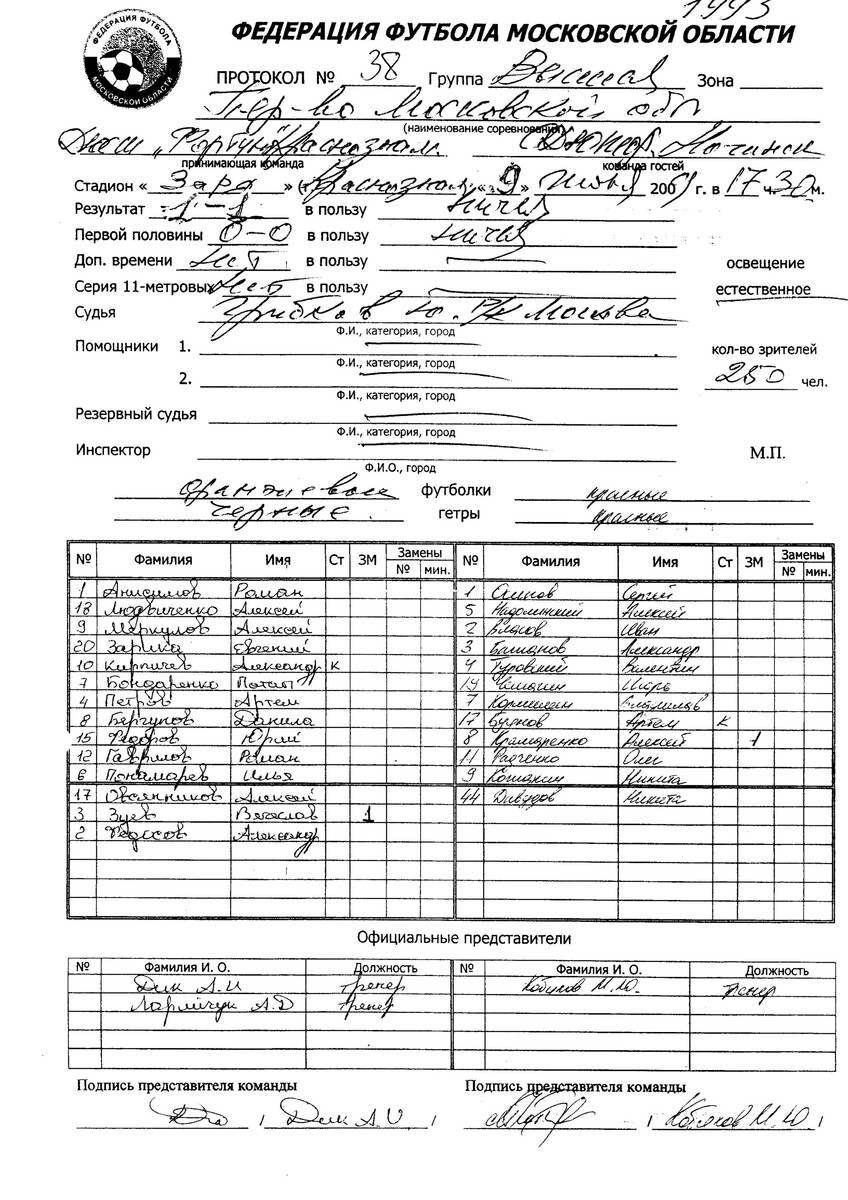 1993
ФЕДЕРАЦИЯ ФУТБОЛА МОСКОВСКОЙ ОБЛАСТИ
ФЕДЕРАЦИЯ ФУТБОЛА МОСКОВСКОЙ ОБЛАСТИ
ПРОТОКОЛ № 38 Группа Высшая Зона
Пер-во Московской обл
(наименование соревнования)
"Фортуна" Краснознам. Ногинск
принимающая команда команда гостей
Стадион « Заря » (г. Краснознам. «9» июля 2009 г. в 17 ч 30 м.
Результат 1-1 в пользу ничья
Первой половины 0-0 в пользу ничья
Доп. времени нет в пользу — освещение
Серия 11-метровых нет в пользу — естественное
Судья Грибков Ю. Р/К Москва
Ф.И., категория, город
Помощники 1. — кол-во зрителей
Ф.И., категория, город
2. — 250 чел.
Ф.И., категория, город
Резервный судья —
Ф.И., категория, город
Инспектор — М.П.
Ф.И.О., город
оранжевые футболки красные
черные гетры красные
№ Фамилия Имя Ст ЗМ Замены № мин. № Фамилия Имя Ст ЗМ Замены № мин.
1 Анисимов Роман 1 Сергей
18 Людвиченко Алексей 5 Алексей
9 Меркулов Алексей 2 Власов Иван
20 Зарика Евгений 3 Башанов Александр
10 Кирпичев Александр К 4 Гуровский Валентин
7 Бондаренко Потап 19 Чамагин Игорь
4 Петров Артем 7 Владислав
8 Бергунов Данила 17 Артем К
15 Федоров Юрий 8 Крамаренко Алексей 1
12 Гаврилов Роман 11 Радченко Олег
6 Пономарев Илья 9 Кошанин Никита
17 Овсянников Алексей 44 Давыдов Никита
3 Зуев Вячеслав 1
2 Александр
Официальные представители
№ Фамилия И. О. Должность № Фамилия И. О. Должность
Дик А.И тренер Кобяков М.Ю. тренер
А.Д тренер
Подпись представителя команды Подпись представителя команды
Дик А.И. Кобяков М.Ю.